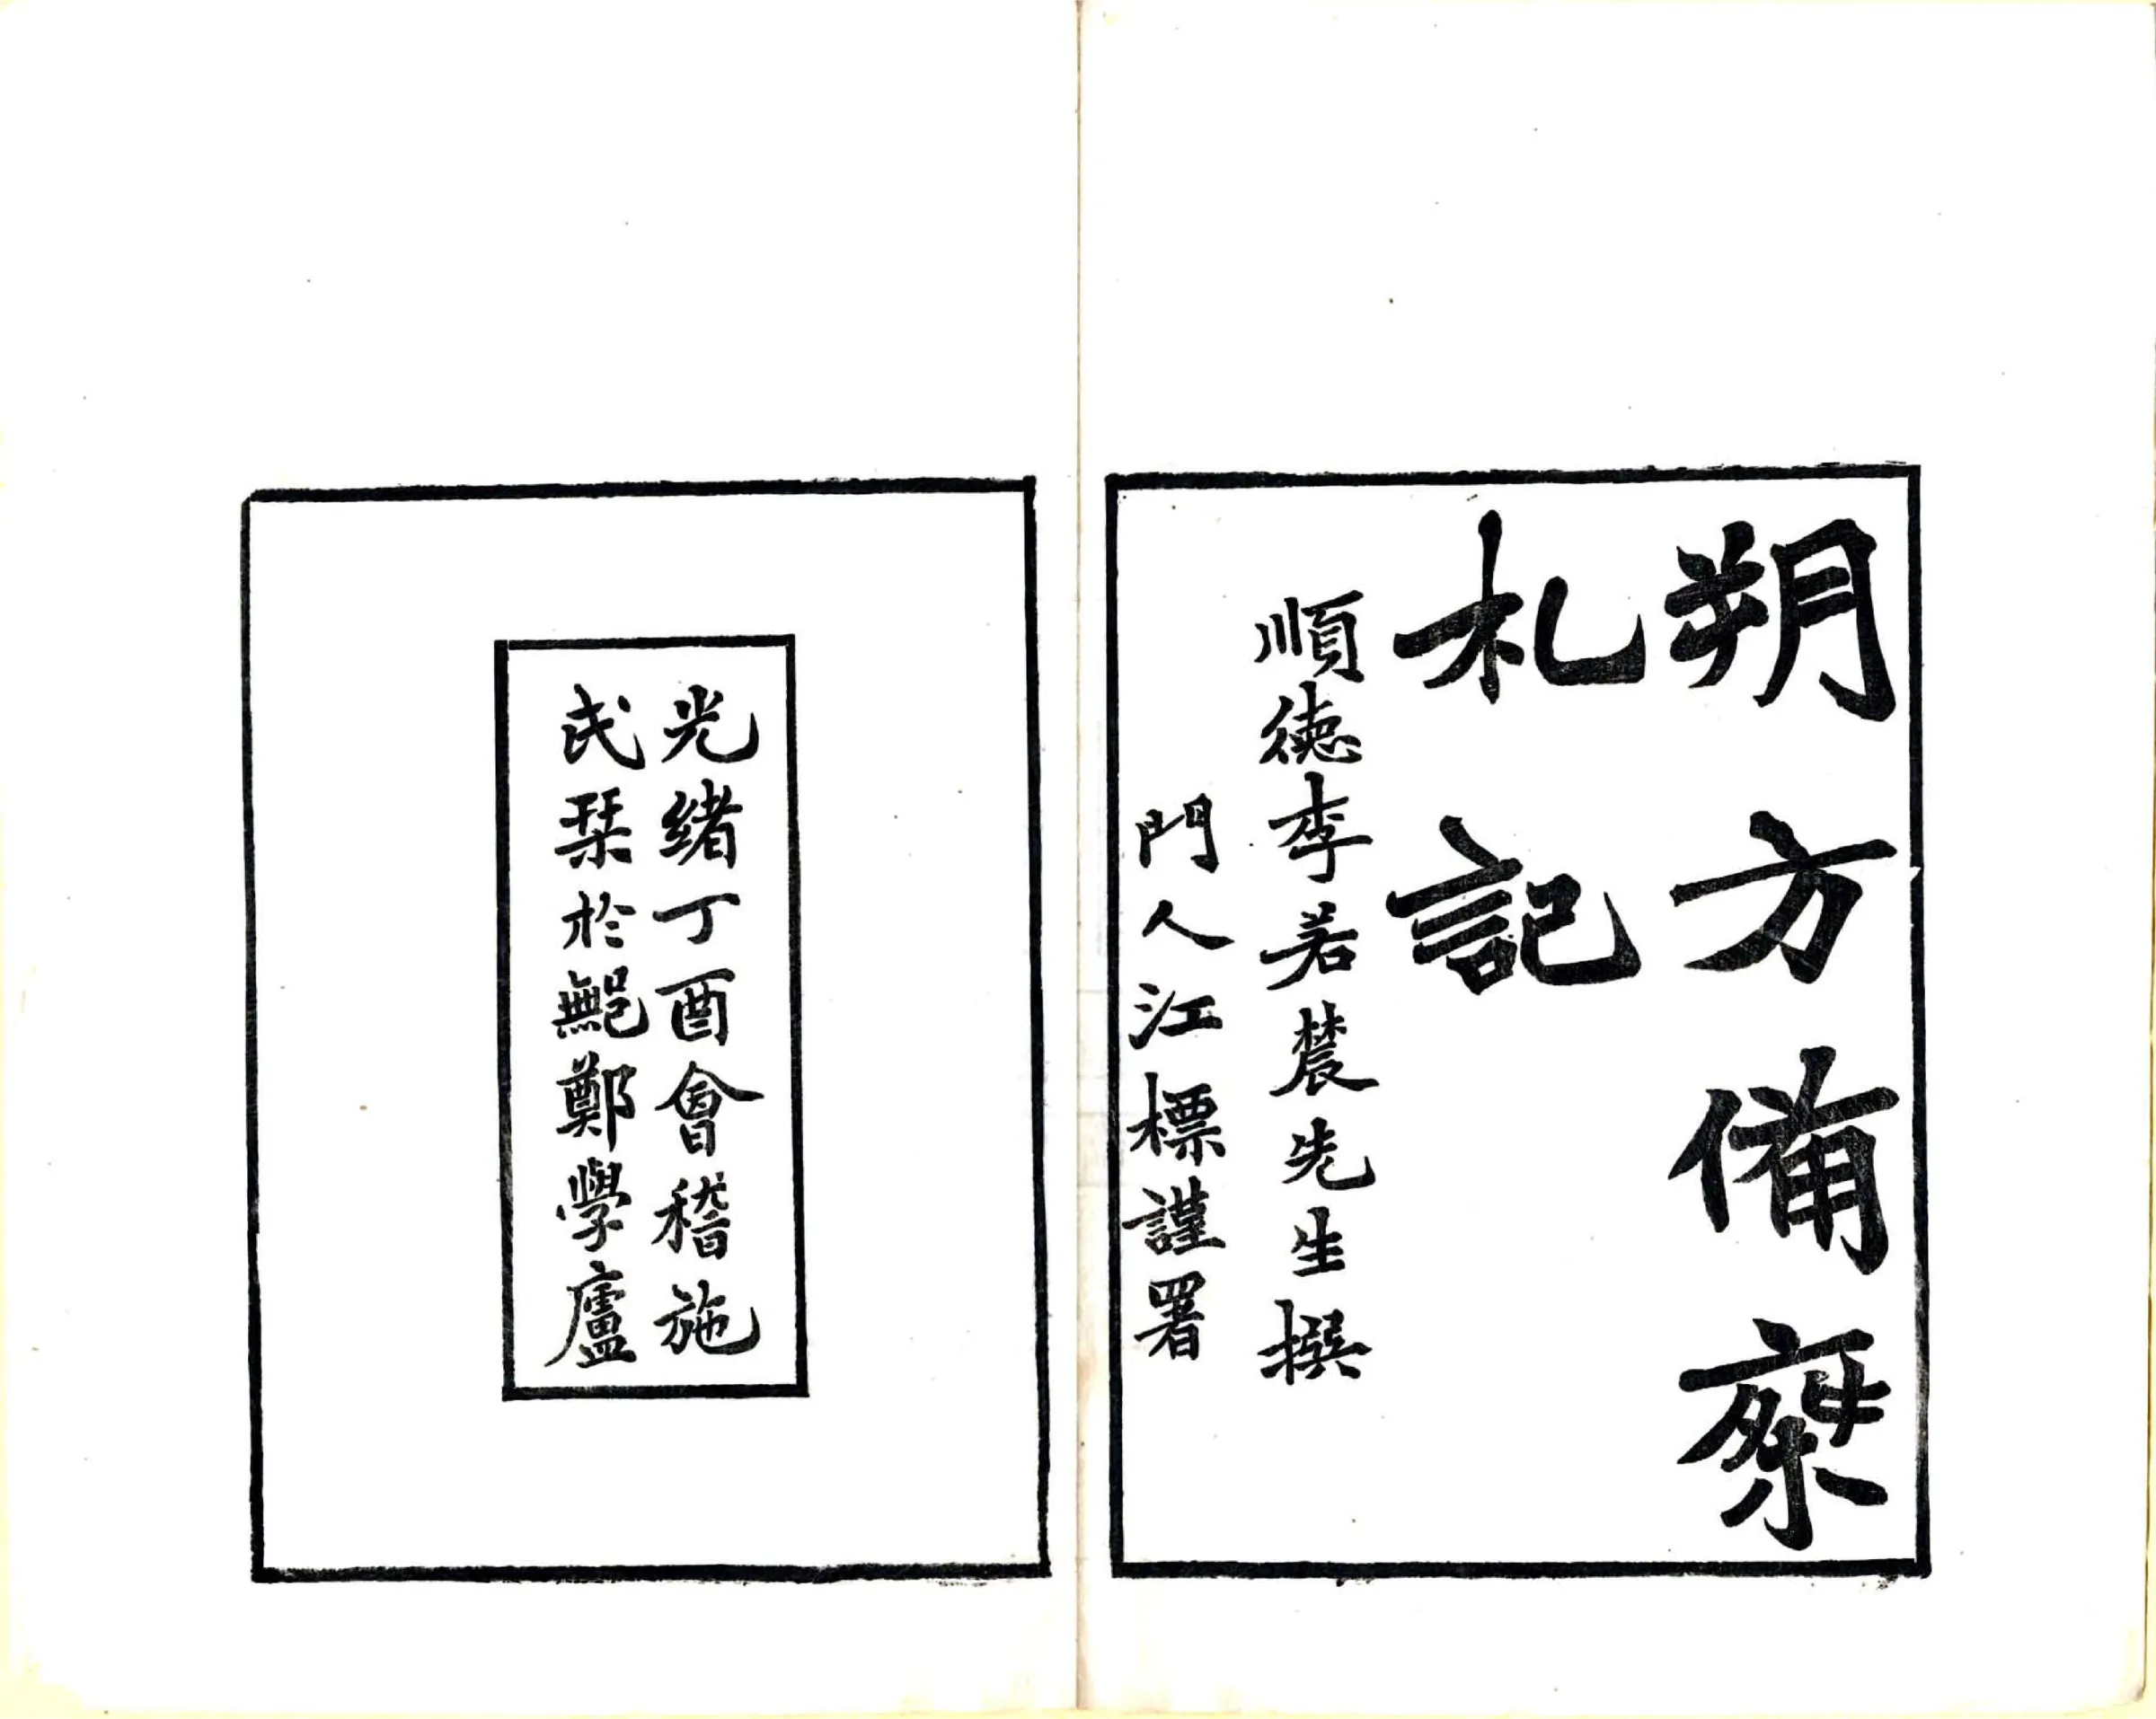 朔方備乘
札記
順德李若農先生撰
門人江標謹署
光緒丁酉會稽施
氏栞於鄭學廬